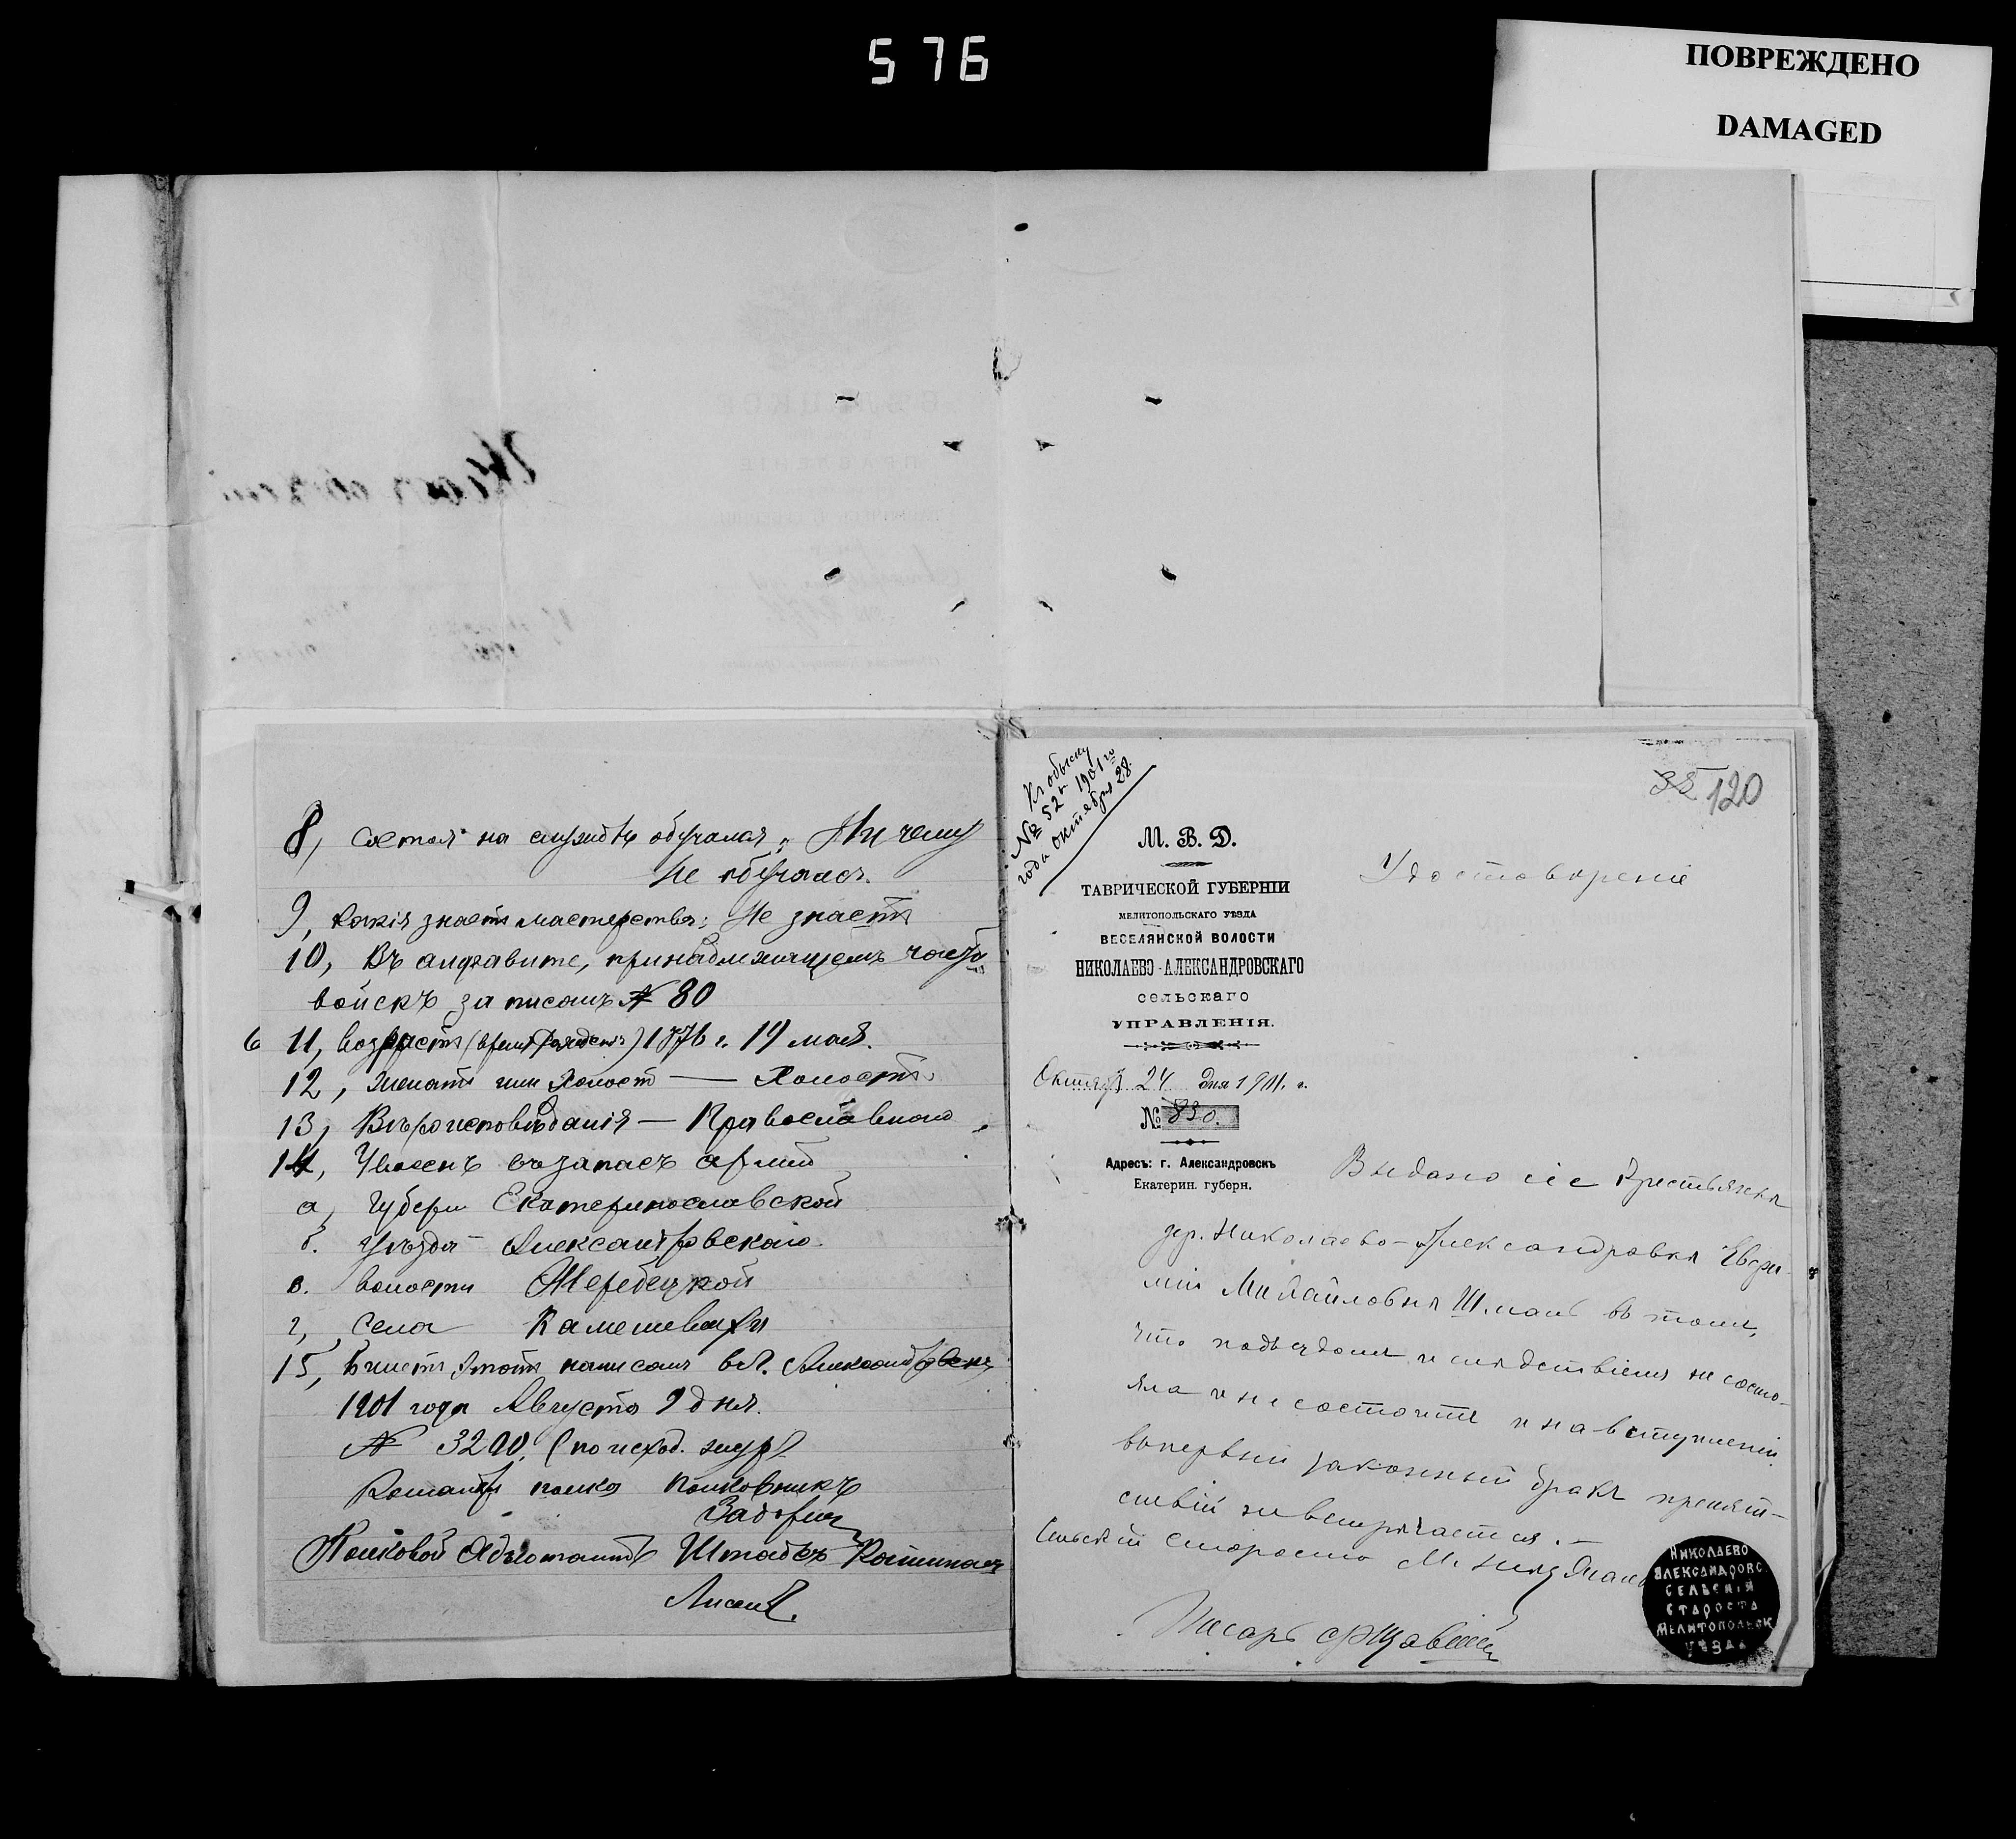 576
ПОВРЕЖДЕНО
DAMAGED
8, Состоя на службѣ обучался: Ничему
не обучался.
9, какія знаетъ мастерства: Не знаетъ
10, Въ алфавите, принадлежащемъ части
войскъ записанъ № 80
6 11, возрастъ (время рожденія) 1876 г. 19 мая.
12, женатъ или холост — Холостъ
13, Вѣроисповѣданія — Православнаго
14, Уволенъ въ запасъ арміи
а, Губерн Екатеринославской
б. уѣзда Александровскаго
в. волости Жеребецкой
г, Села Камышевахи
15, билетъ этотъ написанъ в г. Александровскѣ
1901 года Августа 9 дня.
№ 3200. (по исход. журн
Команд полка Полковникъ
Полковой Адъютантъ Штабсъ Капитанъ
Къ обыску
№ 52й 1901го
года октября 28.
35 120
М. В. Д.
ТАВРИЧЕСКОЙ ГУБЕРНІИ
МЕЛИТОПОЛЬСКАГО УѢЗДА
ВЕСЕЛЯНСКОЙ ВОЛОСТИ
НИКОЛАЕВО-АЛЕКСАНДРОВСКАГО
СЕЛЬСКАГО
УПРАВЛЕНІЯ.
Октяб 24 дня 1901 г.
№ 830.
Адресъ: г. Александровскъ
Екатерин. губерн.
Удостовореніе
Выдано сіе Крестьянкѣ
дер. Николаево-Александровкѣ Евфи-
міи Михайловнѣ въ томъ,
что подъ судомъ и слѣдствіемъ не состо-
яла и не состоитъ и на вступленіи
вопервый законный бракъ препят-
ствій не встрѣчается. —
Сельскій Староста М.
Писарь
НИКОЛАЕВО
АЛЕКСАНДРОВС
СЕЛЬСКІЙ
СТАРОСТА
МЕЛИТОПОЛЬСК
УѢЗДА